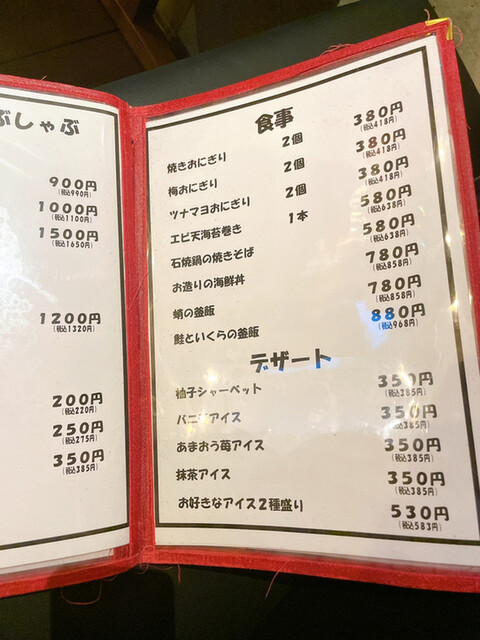 ぶしゃぶ
900円
(税込990円)
1000円
(税込1100円)
1500円
(税込1650円)
1200円
(税込1320円)
200円
(税込220円)
250円
(税込275円)
350円
(税込385円)
食事
焼きおにぎり 2個 380円
(税込418円)
梅おにぎり 2個 380円
(税込418円)
ツナマヨおにぎり 2個 380円
(税込418円)
エビ天海苔巻き 1本 580円
(税込638円)
石焼鍋の焼きそば 580円
(税込638円)
お造りの海鮮丼 780円
(税込858円)
蛸の釜飯 780円
(税込858円)
鮭といくらの釜飯 880円
(税込968円)
デザート
柚子シャーベット 350円
(税込385円)
バニラアイス 350円
(税込385円)
あまおう苺アイス 350円
(税込385円)
抹茶アイス 350円
(税込385円)
お好きなアイス2種盛り 530円
(税込583円)